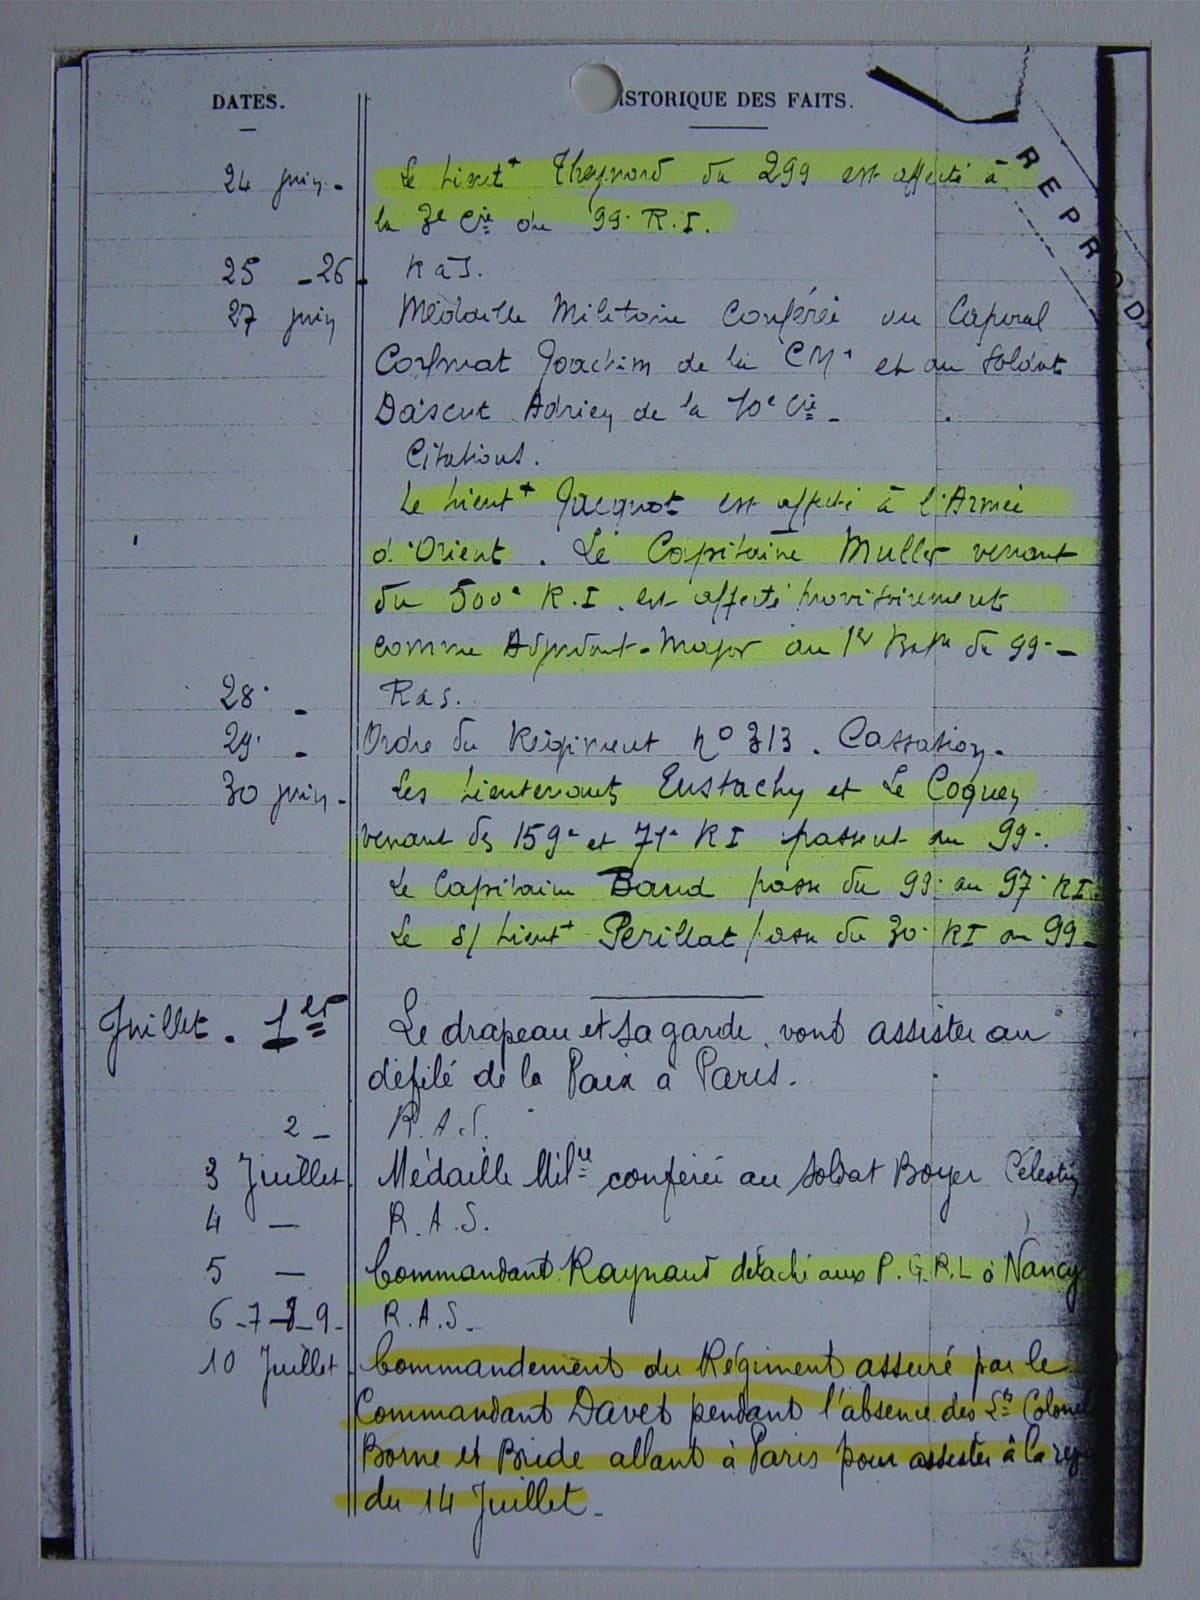 DATES.
ISTORIQUE DES FAITS.
REPROD
24 juin - Le Lieut^t Theynard du 299 est affecté à
la 3e Cie du 99. R.I.
25 - 26 - RAS.
27 juin Médaille Militaire Conférée au Caporal
Joachim de la CM1 et au Soldat
Adrien de la 10e Cie -
Citations.
Le Lieut^t Jacquot est affecté à l'Armée
d'Orient. Le Capitaine Muller venant
du 500e R.I. est affecté provisoirement
comme Adjudant-Major au 1er Batn du 99 -
28 - RAS.
29 - Ordre du Régiment no 313. Cassation -
30 juin - Les Lieutenants Eustachy et Le Coquen
venant des 159e et 71e RI passent au 99.
Le Capitaine Baud passe du 99 au 97e RI.
Le S/Lieut^t Perillat passe du 30e RI au 99 -
Juillet. 1er Le drapeau et sa garde vont assister au
défilé de la Paix à Paris.
2 - R.A.S.
3 Juillet. Médaille Milre conférée au soldat Boyer Célestin
4 — R.A.S.
5 — Commandant Raynaud détaché aux P.G.R.L à Nancy
6-7-8-9- R.A.S-
10 Juillet. Commandement du Régiment assuré par le
Commandant Davet pendant l'absence des Lts Colonel
Borne et Bride allant à Paris pour assister à la
du 14 Juillet -